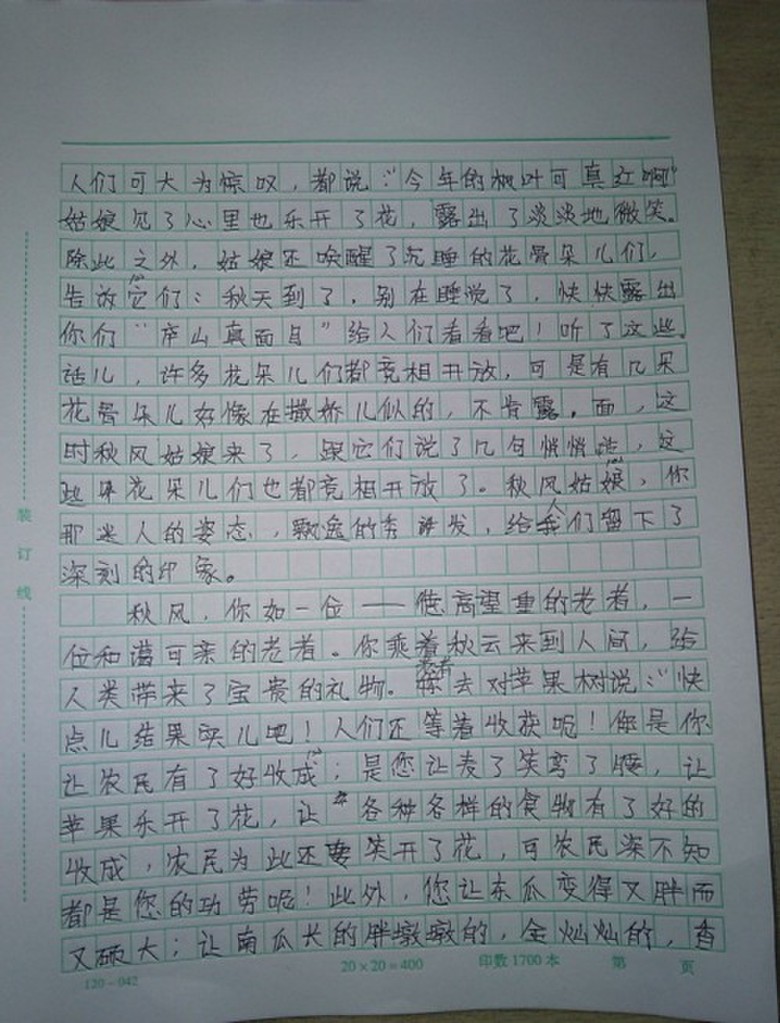 人们可大为惊叹，都说：“今年的枫叶可真红啊”
姑娘见了心里也乐开了花，露出了淡淡地微笑。
除此之外，姑娘还唤醒了沉睡的花骨朵儿们，
告放它们：秋天到了，别在睡觉了，快快露出
你们“庐山真面目”给人们看看吧！听了这些
话儿，许多花朵儿们都竞相开放，可是有几朵
花骨朵儿好像在撒娇儿似的，不肯露，面，这
时秋风姑娘来了，跟它们说了几句悄悄话，这
些花朵儿们也都竞相开放了。秋风姑娘，你
那迷人的姿态，飘逸的秀发，给人们留下了
深刻的印象。
秋风，你如一位——德高望重的老者，一
位和蔼可亲的老者。你乘着秋云来到人间，给
人类带来了宝贵的礼物。老者去对苹果树说：“快
点儿结果实儿吧！人们还等着收获呢！您是你
让农民有了好收成；是您让麦子笑弯了腰，让
苹果乐开了花，让各种各样的食物有了好的
收成，农民为此还要笑开了花，可农民深不知
都是您的功劳呢！此外，您让东瓜变得又胖而
又硕大；让南瓜长的胖墩墩的，金灿灿的，香
装订线
120-042
20×20=400
印数1700本
第 页